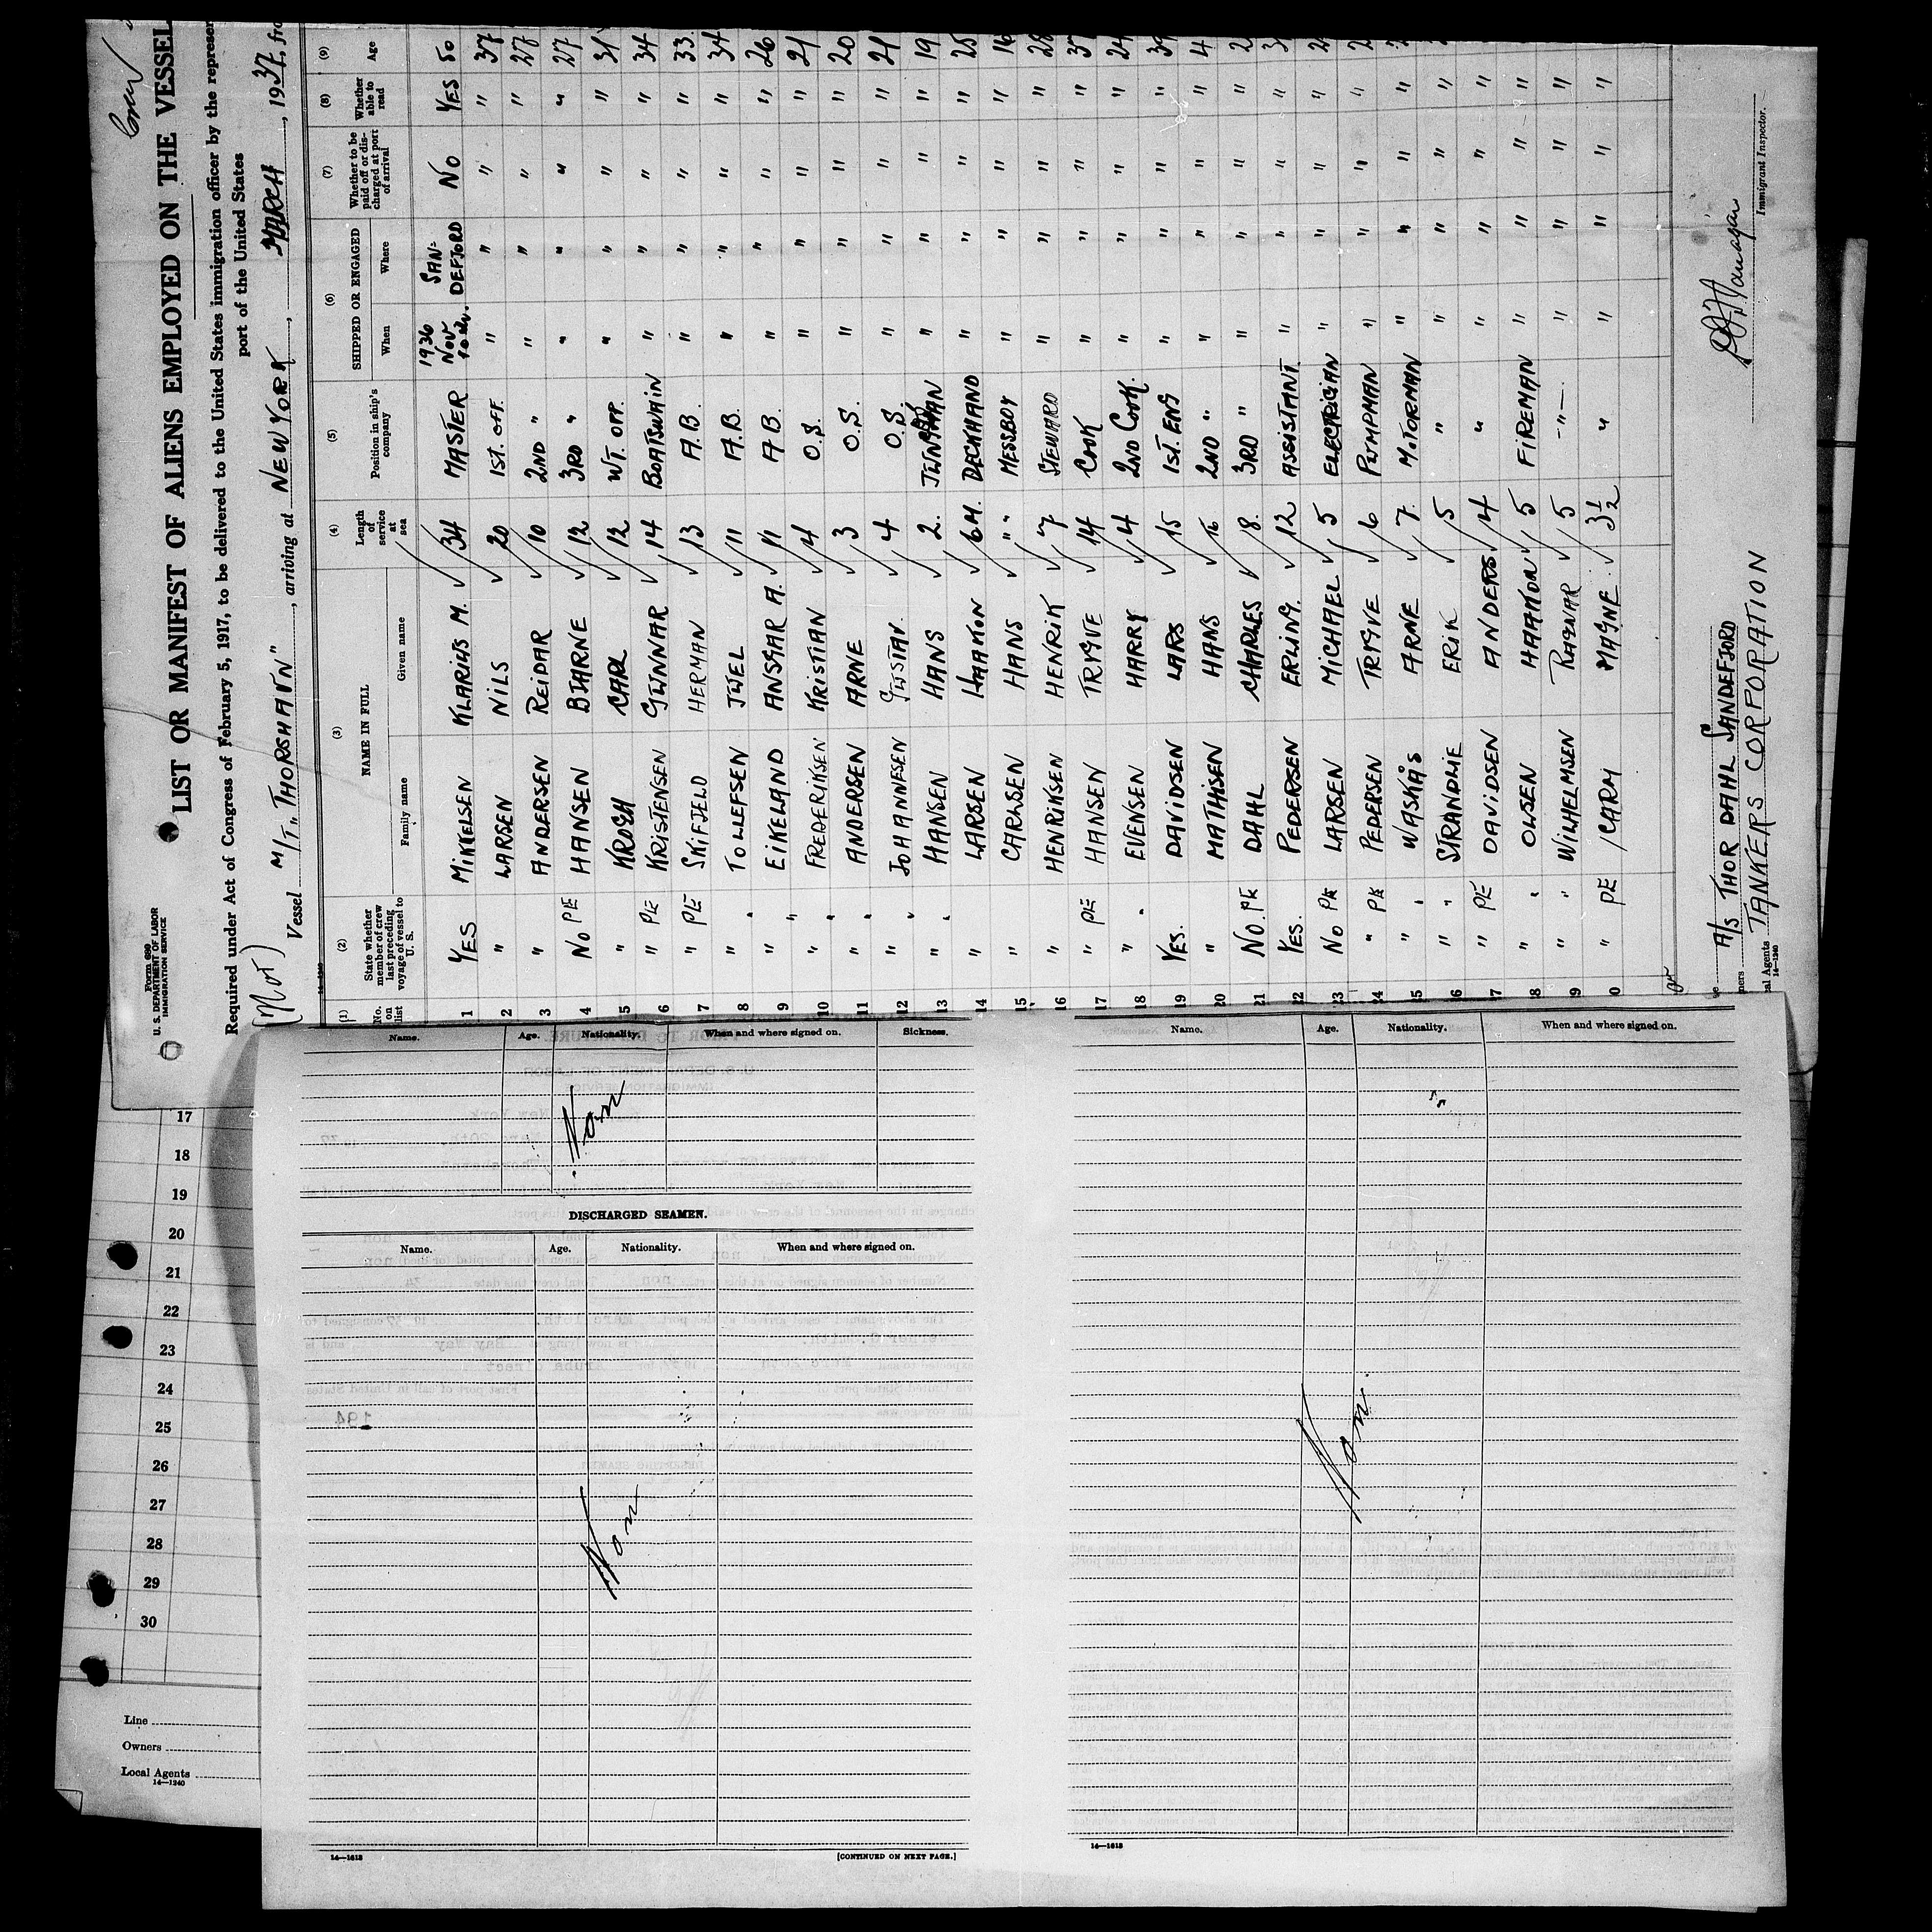 Form 689
U. S. DEPARTMENT OF LABOR
IMMIGRATION SERVICE
Crew
LIST OR MANIFEST OF ALIENS EMPLOYED ON THE VESSEL
Required under Act of Congress of February 5, 1917, to be delivered to the United States immigration officer by the represen
port of the United States
(Mot) Vessel M/T. "THORSHAVN", arriving at NEW YORK, MARCH, 1937, fro
14—1240
(1) (2) (3) (4) (5) (6) (7) (8) (9)
No. on list State whether member of crew last preceding voyage of vessel to U. S. NAME IN FULL Family name Given name Length of service at sea Position in ship's company SHIPPED OR ENGAGED When Where Whether to be paid off or discharged at port of arrival Whether able to read Age
1 YES MIKKELSEN KLARIUS M. 34 MASTER 1936 NOV 10 SANDEFJORD NO YES 50
2 " LARSEN NILS 20 1ST. OFF. " " " " 37
3 " ANDERSEN REIDAR 10 2ND " " " " " 27
4 NO PE HANSEN BJARNE 12 3RD " " " " " 27
5 " KROGH CARL 12 WT. OPP. " " " " 31
6 " PE KRISTENSEN GUNNAR 14 BOATSWAIN " " " " 34
7 " PE SKIFJELD HERMAN 13 A.B. " " " " 33
8 " " TOLLEFSEN JUEL 11 A.B. " " " " 34
9 " " EIKELAND ANSGAR A. 11 A B. " " " " 26
10 " " FREDERIKSEN KRISTIAN 4 O.S. " " " " 21
11 " " ANDERSEN ARNE 3 O.S. " " " " 20
12 " " JOHANNESEN GUSTAV 4 O.S. " " " " 21
13 " " HANSEN HANS 2. JUNGMAN " " " " 19
14 " LARSEN HAAKON 6 M. DECKHAND " " " " 25
15 " CARLSEN HANS " " MESSBOY " " " " 16
16 " HENRIKSEN HENRIK 7 STEWARD " " " " 28
17 " PE HANSEN TRYGVE 14 COOK " " " " 37
18 " " EVENSEN HARRY 4 2ND COOK. " " " " 24
19 YES. DAVIDSEN LARS 15 1ST. ENG " " " " 39
20 " MATHISEN HANS 16 2ND " " " " " 4
21 NO. PE DAHL CHARLES 8. 3RD " " " " " 2
22 YES. PEDERSEN ERLING. 12 ASSISTANT " " " " 3
23 NO PE LARSEN MICHAEL 5 ELECTRICIAN " " " " 2
24 " PE PEDERSEN TRYGVE 6 PUMPMAN " " " " 2
25 " " WASKÅS ARNE 7. MOTORMAN " " " "
26 " " STRANDLIE ERIK 5 " " " " "
27 " PE DAVIDSEN ANDERS 4 " " " " "
28 " " OLSEN HAAKON 5 FIREMAN " " " "
9 " " WILHELMSEN RAGNAR 5 -"- " " " "
0 " PE CARM MAGNE. 3½ " " " " "
A/S THOR DAHL SANDEFJORD
ners TANKERS CORPORATION
al Agents
14—1240
Immigrant Inspector.
Name. Age. Nationality. When and where signed on. Sickness.
Non
DISCHARGED SEAMEN.
Name. Age. Nationality. When and where signed on.
Non
14—1613
[CONTINUED ON NEXT PAGE.]
Name. Age. Nationality. When and where signed on.
Non
14—1613
17
18
19
20
21
22
23
24
25
26
27
28
29
30
Line
Owners
Local Agents
14—1240